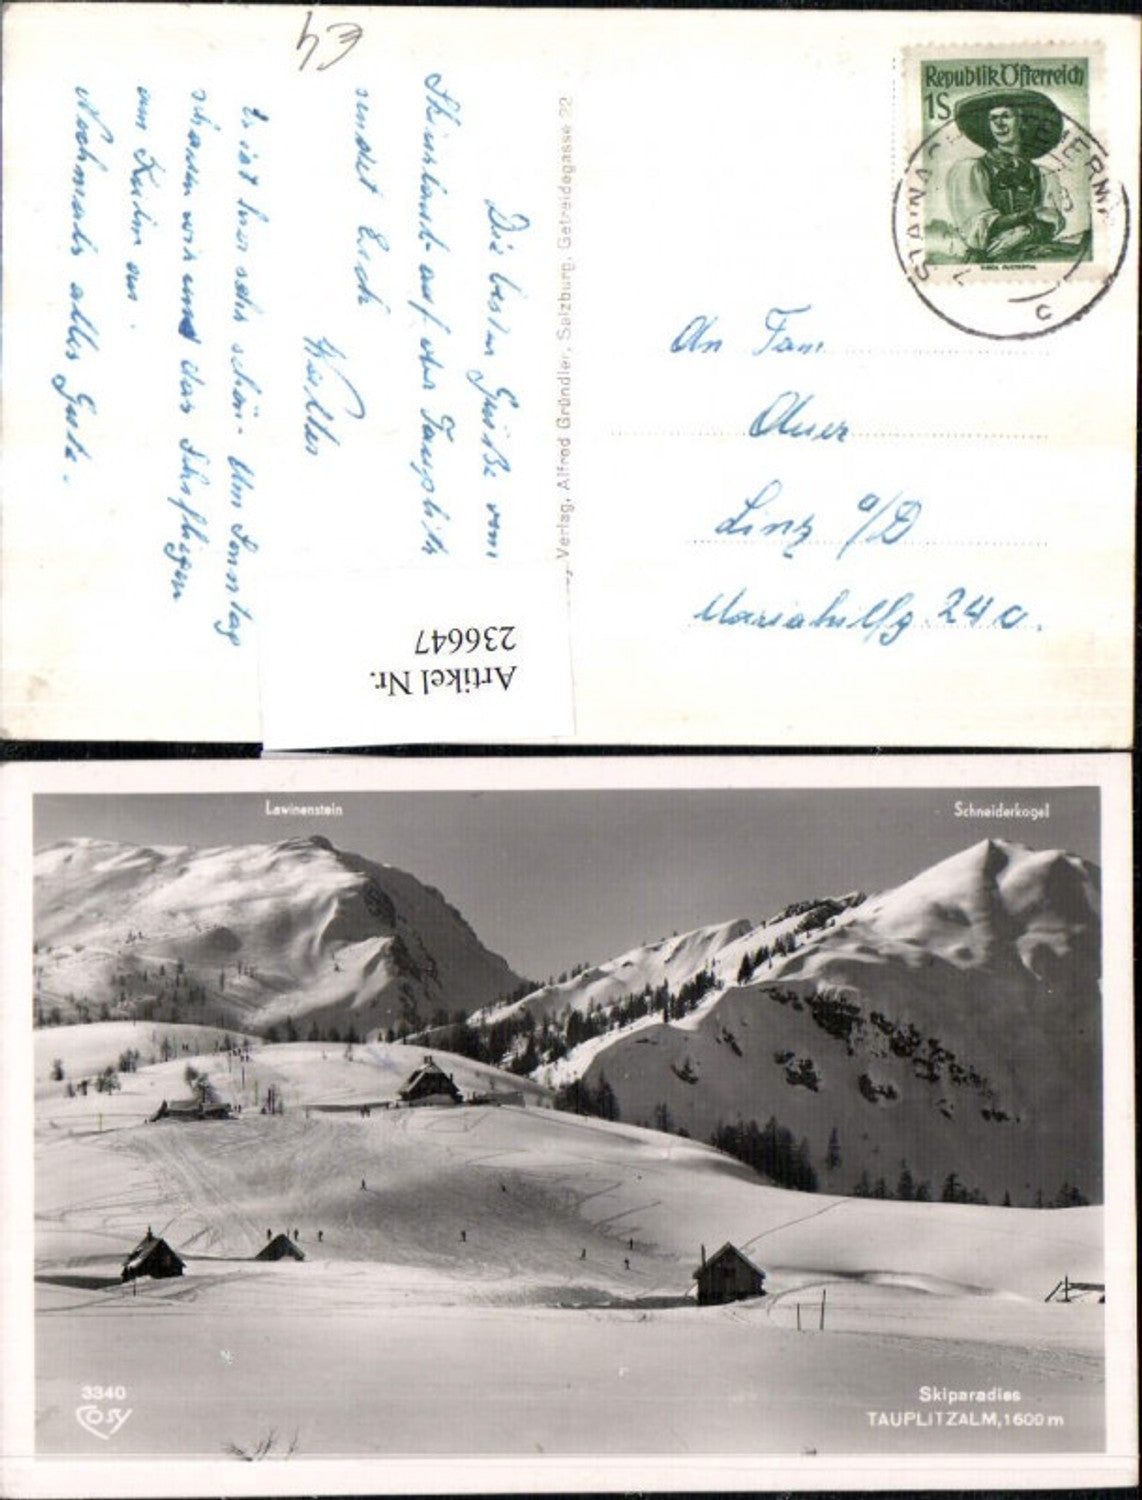 €4
Die besten Grüße vom
Skiurlaub auf der Tauplitz
sendet Euch
Walter
Es ist hier sehr schön. Am Sonntag
schauen wir uns das Skifliegen
am Kulm an.
Nochmals alles Gute.
Verlag, Alfred Gründler, Salzburg, Getreidegasse 22
Republik Österreich
1S
STAINACH
An Fam
Auer
Linz a/D
Mariahilfg. 24a.
Artikel Nr.
236647
Lawinenstein
Schneiderkogel
3340
Cosy
Skiparadies
TAUPLITZALM, 1600 m